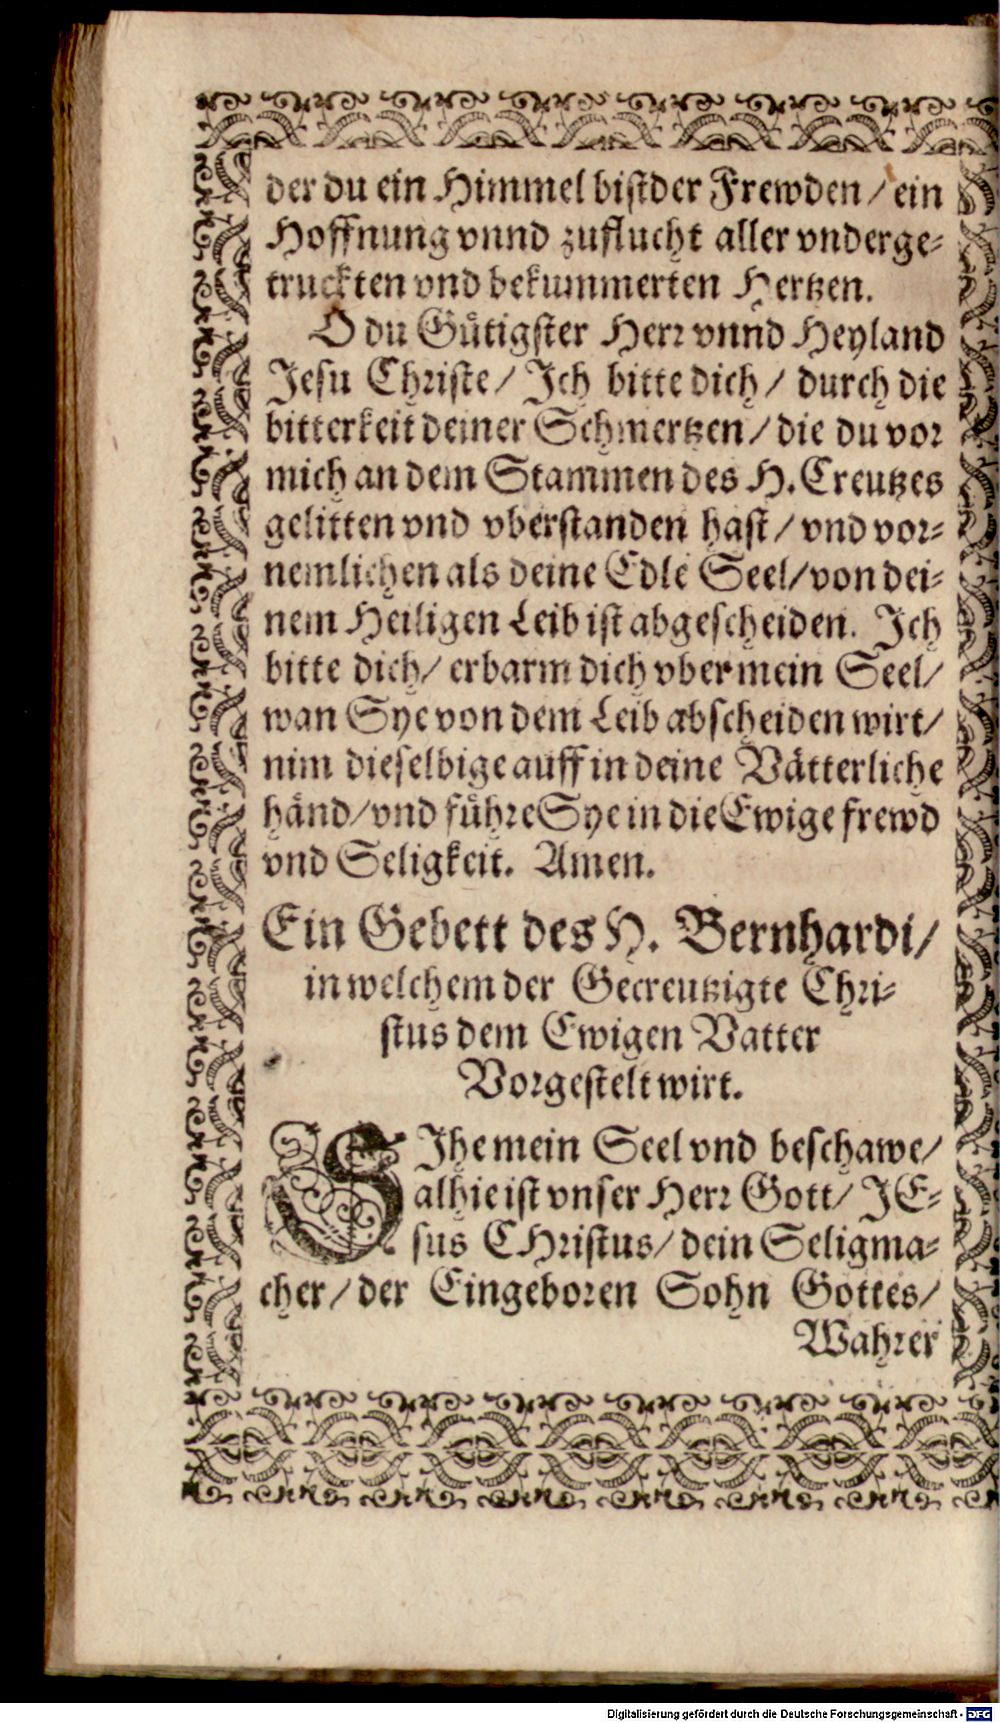 der du ein Himmel bist der Frewden / ein
Hoffnung vnnd zuflucht aller vnderge-
truckten vnd bekummerten Hertzen.
O du Gütigster Herr vnnd Heyland
Jesu Christe / Jch bitte dich / durch die
bitterkeit deiner Schmertzen / die du vor
mich an dem Stammen des H. Creutzes
gelitten vnd vberstanden hast / vnd vor-
nemlichen als deine Edle Seel / von dei-
nem Heiligen Leib ist abgescheiden. Jch
bitte dich / erbarm dich vber mein Seel /
wan Sye von dem Leib abscheiden wirt /
nim dieselbige auff in deine Vätterliche
händ / vnd führe Sye in die Ewige frewd
vnd Seligkeit. Amen.
Ein Gebett des H. Bernhardi /
in welchem der Gecreutzigte Chri-
stus dem Ewigen Vatter
Vorgestelt wirt.
SJhe mein Seel vnd beschawe /
alhie ist vnser Herr Gott / JE-
sus CHristus / dein Seligma-
cher / der Eingeboren Sohn Gottes /
Wahrer
Digitalisierung gefördert durch die Deutsche Forschungsgemeinschaft - DFG